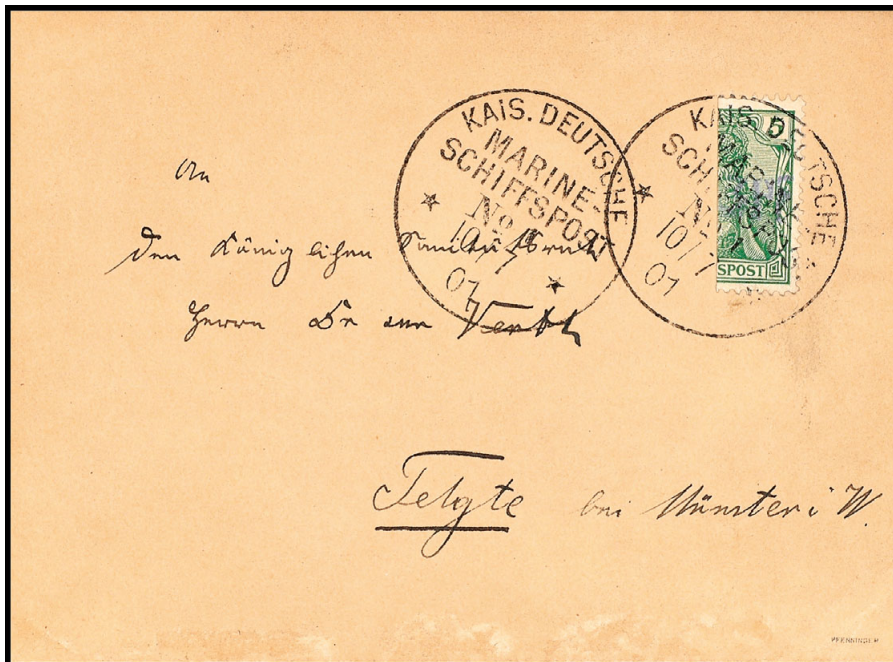 KAIS. DEUTSCHE
MARINE-
SCHIFFSPOST
No
10
7
01
KAIS. DEUTSCHE
MARINE-
SCHIFFSPOST
No 1
10 7
01
5
SPOST
An
den Königlichen Sanitätsrath
Herrn Dr
Telgte bei Münster i W.
PFENNINGER